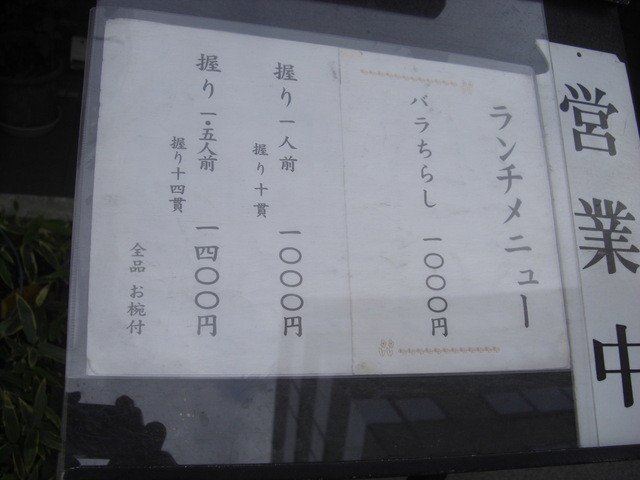 営業中
ランチメニュー
バラちらし 一〇〇〇円
握り 一人前 一〇〇〇円
握り十貫
握り 一・五人前 一四〇〇円
握り十四貫
全品 お椀付